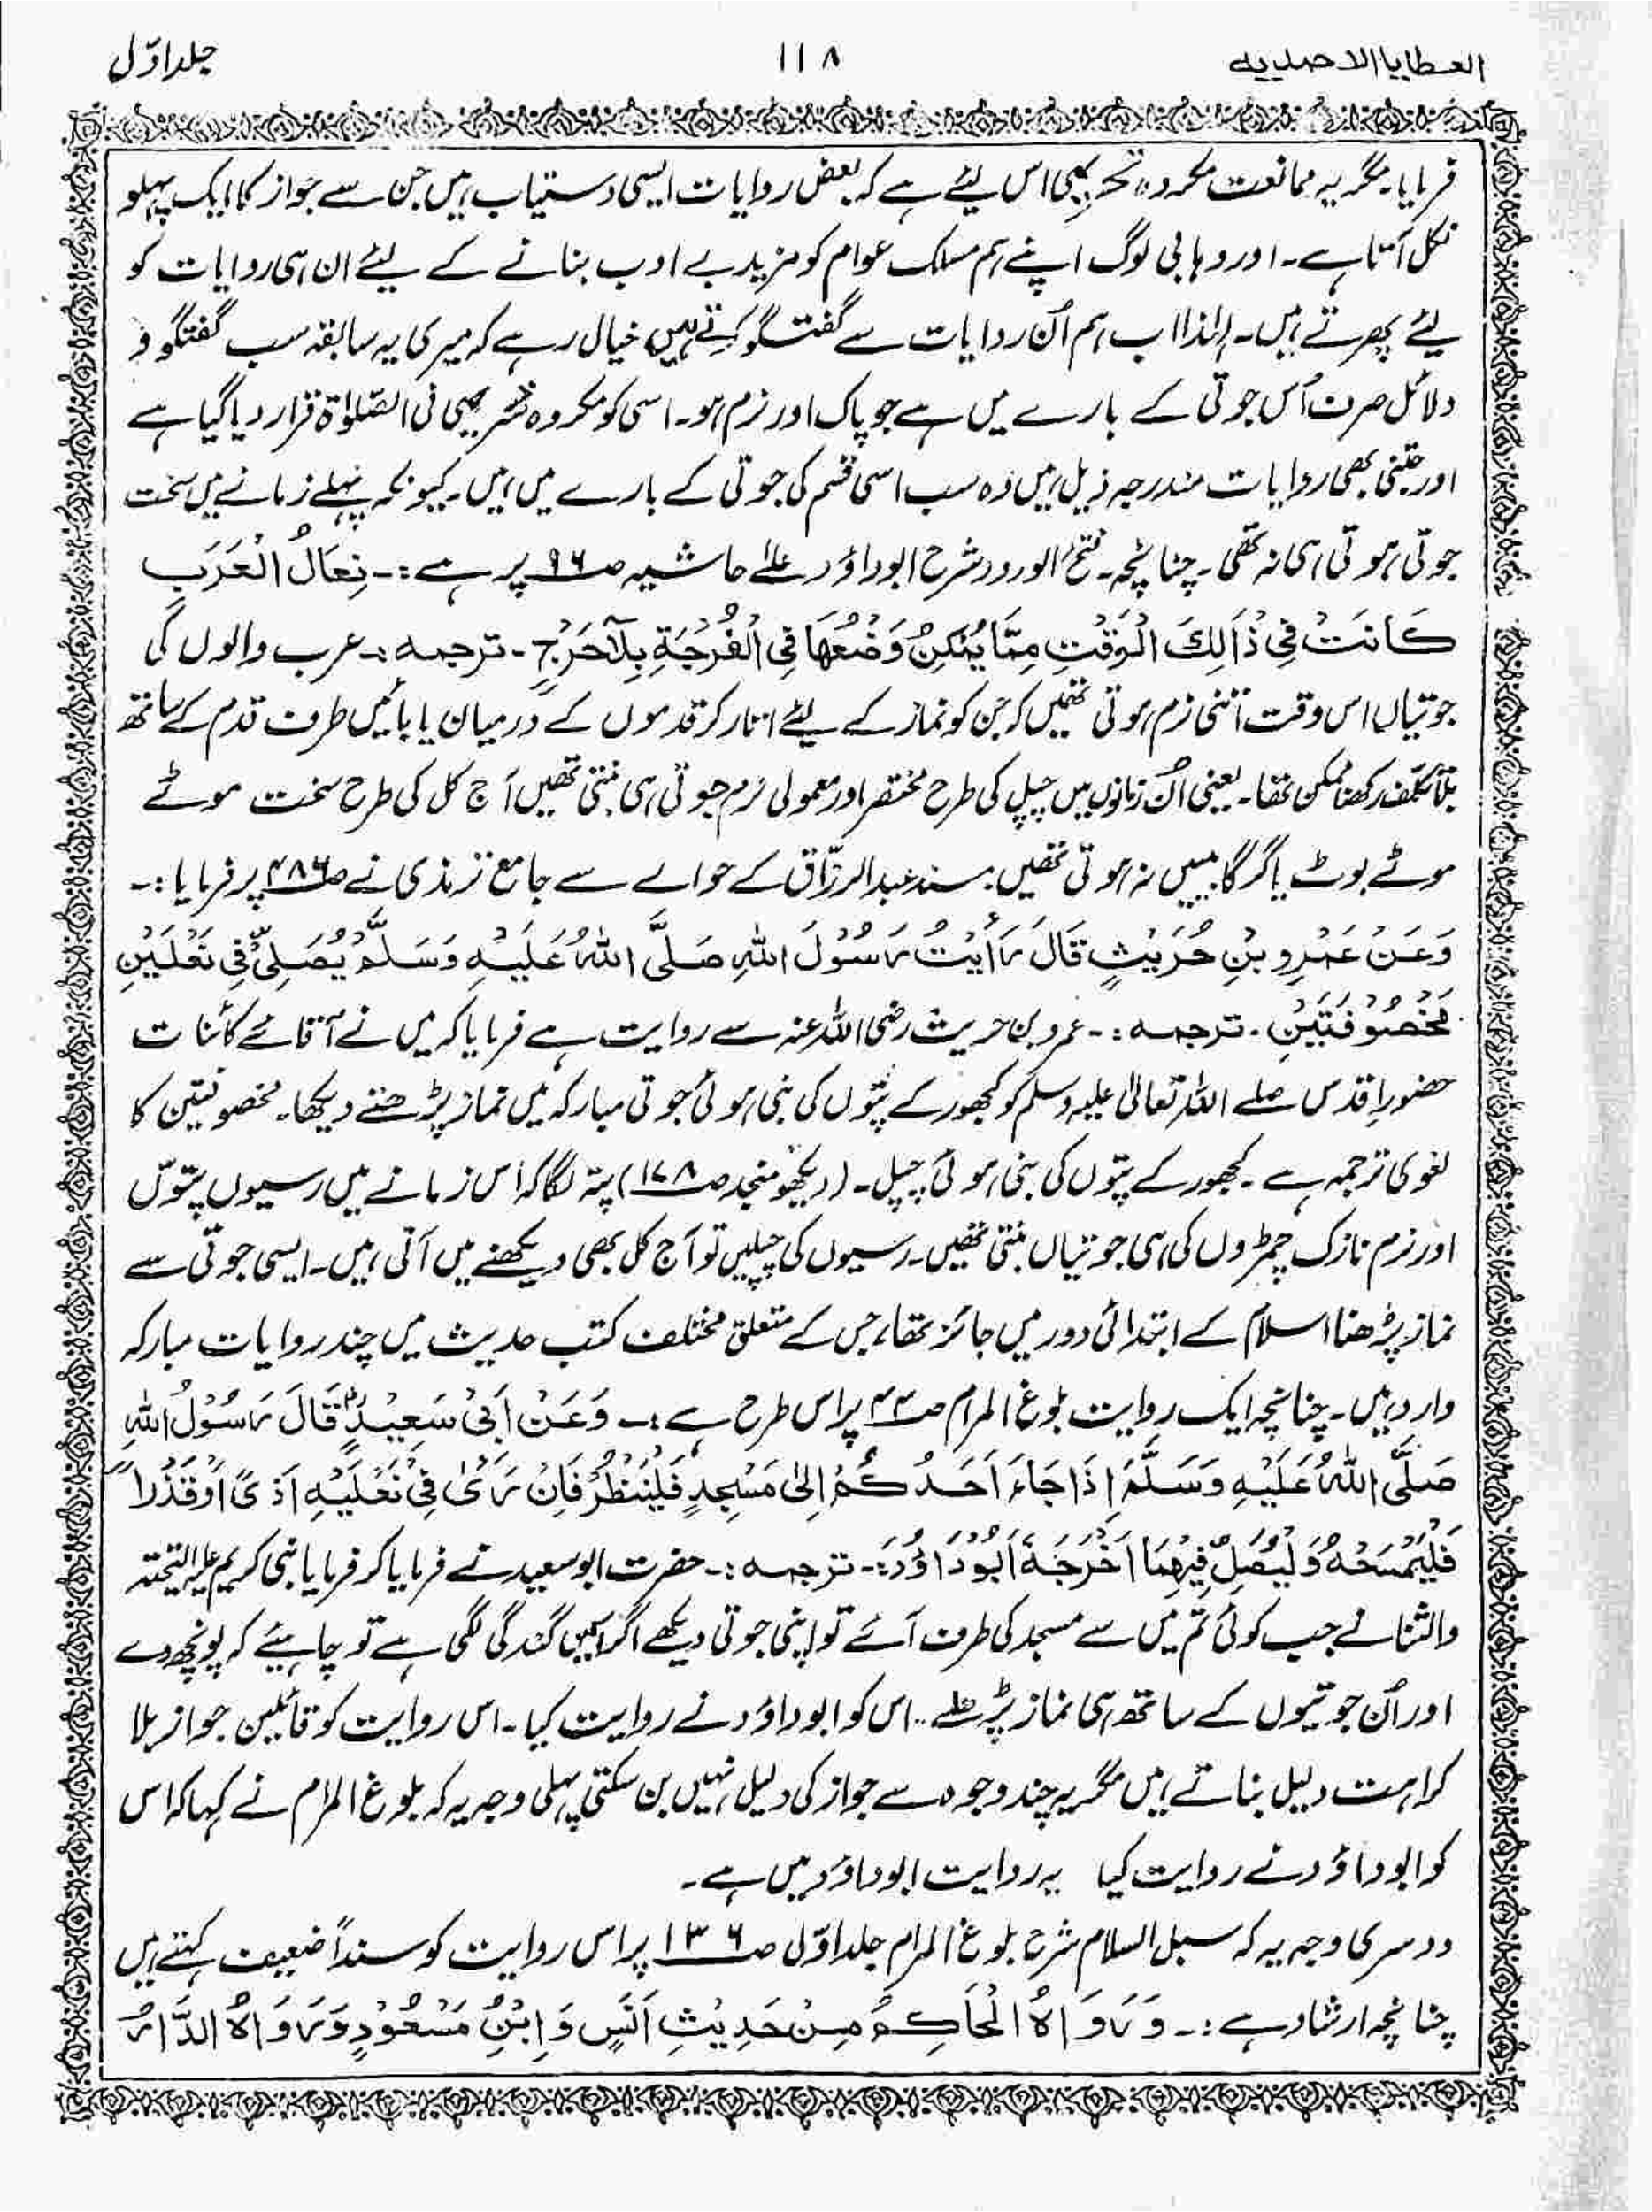 العطایا الاحمدیہ ۱۱۸ جلد اوّل
فرمایا۔ مگر یہ ممانعت مکروہ تحریمی اس لیئے ہے کہ بعض روایات ایسی دستیاب ہیں جن سے جواز کا ایک پہلو
نکل آتا ہے۔ اور وہابی لوگ اپنے ہم مسلک عوام کو مزید بے ادب بنانے کے لیئے ان ہی روایات کو
لیئے پھرتے ہیں۔ لہٰذا اب ہم اُن روایات سے گفتگو کرتے ہیں خیال رہے کہ میری یہ سابقہ سب گفتگو و
دلائل صرف اُس جوتی کے بارے میں ہے جو پاک اور نرم ہو۔ اسی کو مکروہ تحریمی فی الصّلوٰۃ قرار دیا گیا ہے
اور جتنی بھی روایات مندرجہ ذیل ہیں وہ سب اسی قسم کی جوتی کے بارے میں ہیں۔ کیونکہ پہلے زمانے میں سخت
جوتی ہوتی ہی نہ تھی۔ چنانچہ۔ فتح الورود شرح ابوداؤد علیٰ حاشیہ صـ۹۶ پر ہے :۔ نِعَالُ الْعَرَبِ
کَانَتْ فِیْ ذَالِکَ الْوَقْتِ مِمَّا یُمْکِنُ وَضْعُھَا فِی الْفُرْجَۃِ بِلَا حَرْجٍ۔ ترجمہ :۔ عرب والوں کی
جوتیاں اس وقت اتنی نرم ہوتی تھیں کہ جن کو نماز کے لیئے اتار کر قدموں کے درمیان یا بائیں طرف قدم کے ساتھ
بلا تکلف رکھنا ممکن تھا۔ یعنی اُن زمانوں میں چپل کی طرح مختصر اور معمولی نرم جوتی ہی بنتی تھیں آج کل کی طرح سخت موٹے
موٹے بوٹ یا گرگابییں نہ ہوتی تھیں۔ سند عبدالرزّاق کے حوالے سے جامع ترمذی نے صـ۴۸۶ پر فرمایا :۔
وَعَنْ عَمْرِو بْنِ حُرَیْثٍ قَالَ رَأَیْتُ رَسُوْلَ اللہِ صَلَّی اللہُ عَلَیْہِ وَسَلَّمَ یُصَلِّیْ فِیْ نَعْلَیْنِ
مَخْصُوْفَتَیْنِ۔ ترجمہ :۔ عمرو بن حریث رضی اللہ عنہ سے روایت ہے فرمایا کہ میں نے آقائے کائنات
حضورِ اقدس صلے اللہ تعالیٰ علیہ وسلم کو کھجور کے پتّوں کی بنی ہوئی جوتی مبارکہ میں نماز پڑھتے دیکھا۔ مخصوفتین کا
لغوی ترجمہ ہے۔ کھجور کے پتوں کی بنی ہوئی چپل۔ (دیکھو منجد صـ۱۷۸) پتہ لگا کہ اس زمانے میں رسیوں پتّوں
اور نرم نازک چمڑوں کی ہی جوتیاں بنتی تھیں۔ رسیوں کی چپلیں تو آج کل بھی دیکھنے میں آتی ہیں۔ ایسی جوتی سے
نماز پڑھنا اسلام کے ابتدائی دور میں جائز تھا، جس کے متعلق مختلف کتب حدیث میں چند روایات مبارکہ
وارد ہیں۔ چنانچہ ایک روایت بلوغ المرام صـ۴۴ پر اس طرح ہے :۔ وَعَنْ اَبِیْ سَعِیْدٍ قَالَ رَسُوْلُ اللہِ
صَلَّی اللہُ عَلَیْہِ وَسَلَّمَ اِذَا جَاءَ اَحَدُکُمْ اِلیٰ مَسْجِدٍ فَلْیَنْظُرْ فَاِنْ رَیٰ فِیْ نَعْلَیْہِ اَذیً اَوْ قَذْراً
فَلْیَمْسَحْہُ وَلْیُصَلِّ فِیْھِمَا اَخْرَجَہٗ اَبُوْدَاؤُدَ :۔ ترجمہ :۔ حضرت ابوسعید نے فرمایا کہ فرمایا نبی کریم علیہ التحیۃ
والثنا نے جب کوئی تم میں سے مسجد کی طرف آئے تو اپنی جوتی دیکھے اگر اسمیں گندگی لگی ہے تو چاہیئے کہ پونچھ دے
اور اُن جوتیوں کے ساتھ ہی نماز پڑھ لے۔۔ اس کو ابوداؤد نے روایت کیا۔ اس روایت کو قائلین جواز بلا
کراہت دلیل بناتے ہیں مگر یہ چند وجوہ سے جواز کی دلیل نہیں بن سکتی پہلی وجہ یہ کہ بلوغ المرام نے کہا کہ اس
کو ابوداؤد نے روایت کیا یہ روایت ابوداؤد میں ہے۔
دوسری وجہ یہ کہ سبل السلام شرح بلوغ المرام جلد اوّل صـ۱۳۶ پر اس روایت کو سنداً ضعیف کہتے ہیں
چنانچہ ارشاد ہے :۔ وَرَوَاہُ الْحَاکِمُ مِنْ حَدِیْثِ اَنَسٍ وَابْنِ مَسْعُوْدٍ وَرَوَاہُ الدَّارُ